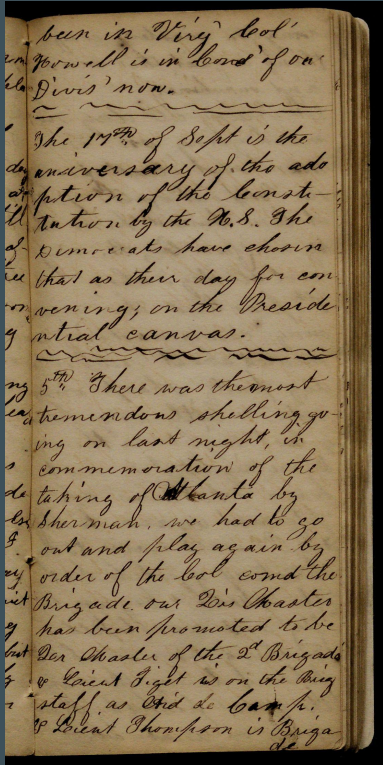 been in Virg' Col'
Howell is in Com'd of our
Divis' now.
The 17th of Sept is the
aniversary of the ado
ption of the Consti-
tution by the U.S. The
Democrats have chosen
that as their day for con
vening, on the Preside
ntial canvas.
5th There was the most
tremendous shelling go-
ing on last night, in
commemoration of the
taking of Atlanta by
Sherman. we had to go
out and play again by
order of the Col comd the
Brigade. our Qr Master
has been promoted to be
Qar Master of the 2d Brigade
& Lieut Tiget is on the Brig
staff as Aid de Camp.
& Lieut Thompson is Briga
de